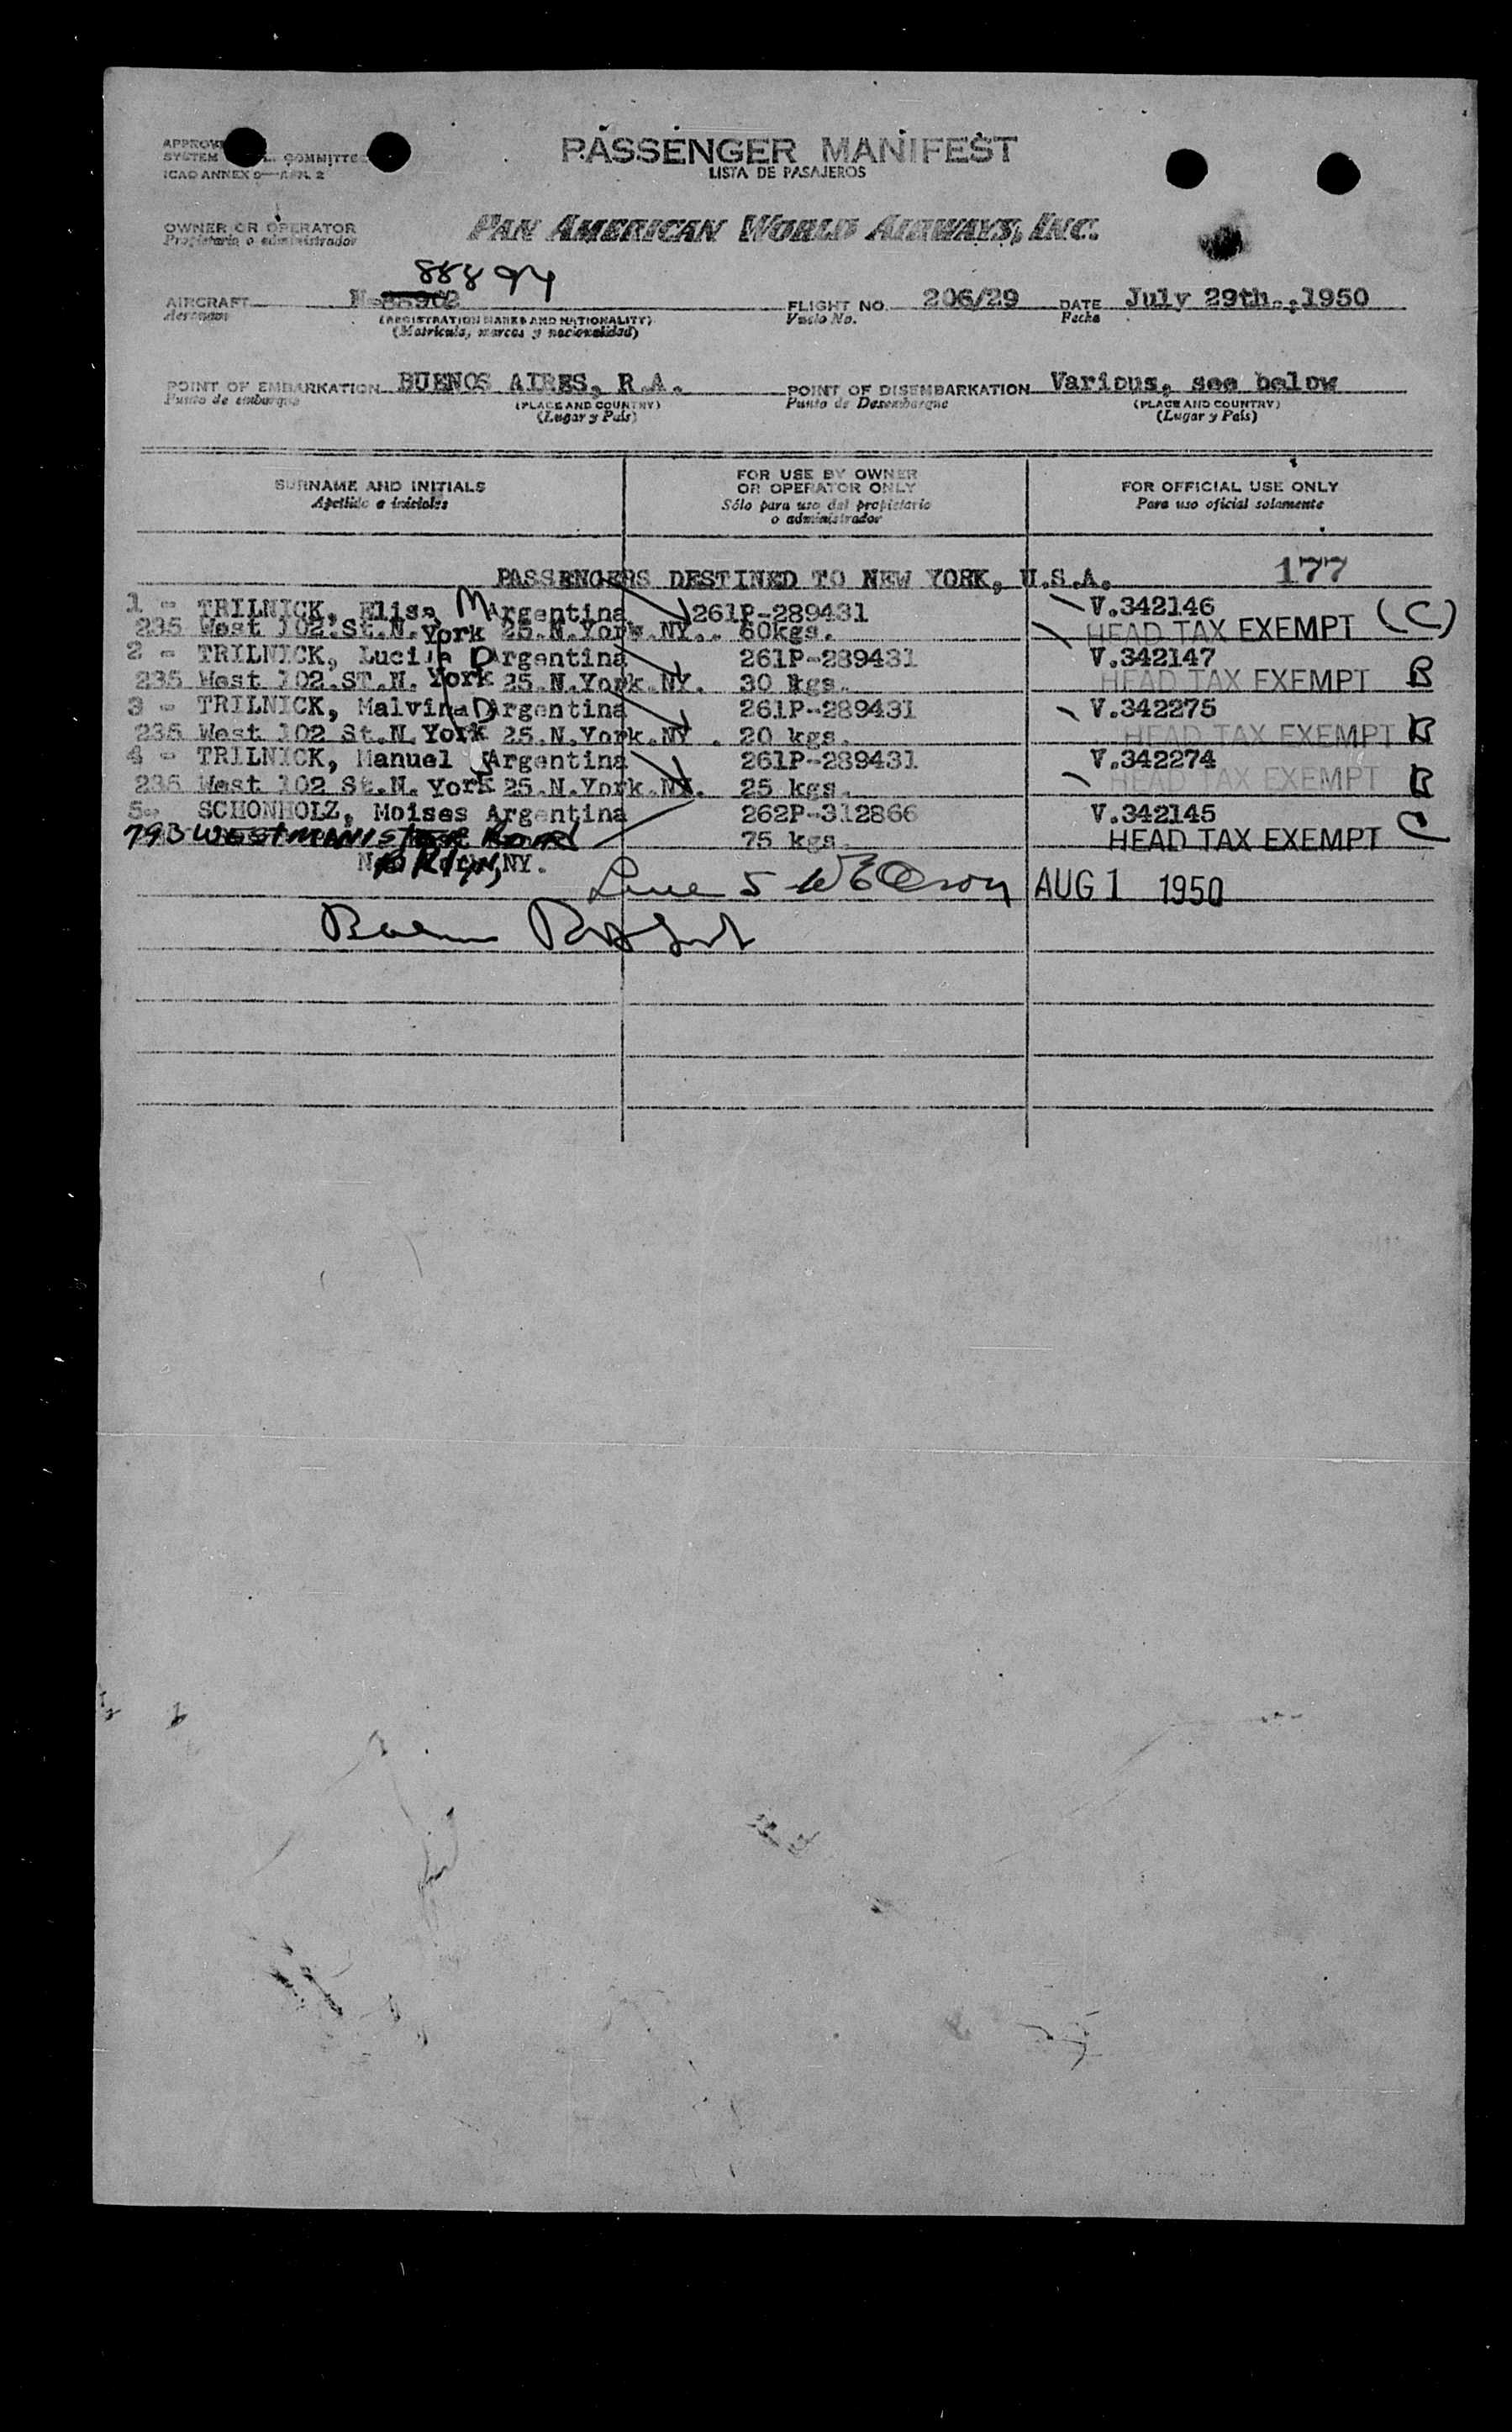 PASSENGER MANIFEST
LISTA DE PASAJEROS
SYSTEM COMMITTEE
ICAO ANNEX 9
OWNER OR OPERATOR
Propietario o administrador
PAN AMERICAN WORLD AIRWAYS, INC.
88894
AIRCRAFT N-88902 FLIGHT NO. 206/29 DATE July 29th.,1950
Aeronave (REGISTRATION MARKS AND NATIONALITY) Vuelo No. Fecha
(Matrícula, marcas y nacionalidad)
POINT OF EMBARKATION BUENOS AIRES, R.A. POINT OF DISEMBARKATION Various, see below
Punto de embarque (PLACE AND COUNTRY) Punto de Desembarque (PLACE AND COUNTRY)
(Lugar y País) (Lugar y País)
SURNAME AND INITIALS FOR USE BY OWNER OR OPERATOR ONLY FOR OFFICIAL USE ONLY
Apellido e iniciales Sólo para uso del propietario o administrador Para uso oficial solamente
PASSENGERS DESTINED TO NEW YORK, U.S.A. 177
1 - TRILNICK, Elisa M Argentina 261P-289431 V.342146
235 West 102.St.N.York 25.N.York.NY.. 60kgs. HEAD TAX EXEMPT (C)
2 - TRILNICK, Lucila D Argentina 261P-289431 V.342147
235 West 102.ST.N.York 25.N.York.NY. 30 kgs. HEAD TAX EXEMPT B
3 - TRILNICK, Malvina D Argentina 261P-289431 V.342275
235 West 102 St.N.York 25.N.York.NY . 20 kgs. HEAD TAX EXEMPT B
4 - TRILNICK, Manuel S Argentina 261P-289431 V.342274
235 West 102 St.N.York 25.N.York.NY. 25 kgs. HEAD TAX EXEMPT B
5- SCHONHOLZ, Moises Argentina 262P-312866 V.342145
793 WESTMINISTER ROAD 75 kgs. HEAD TAX EXEMPT C
NY.
AUG 1 1950